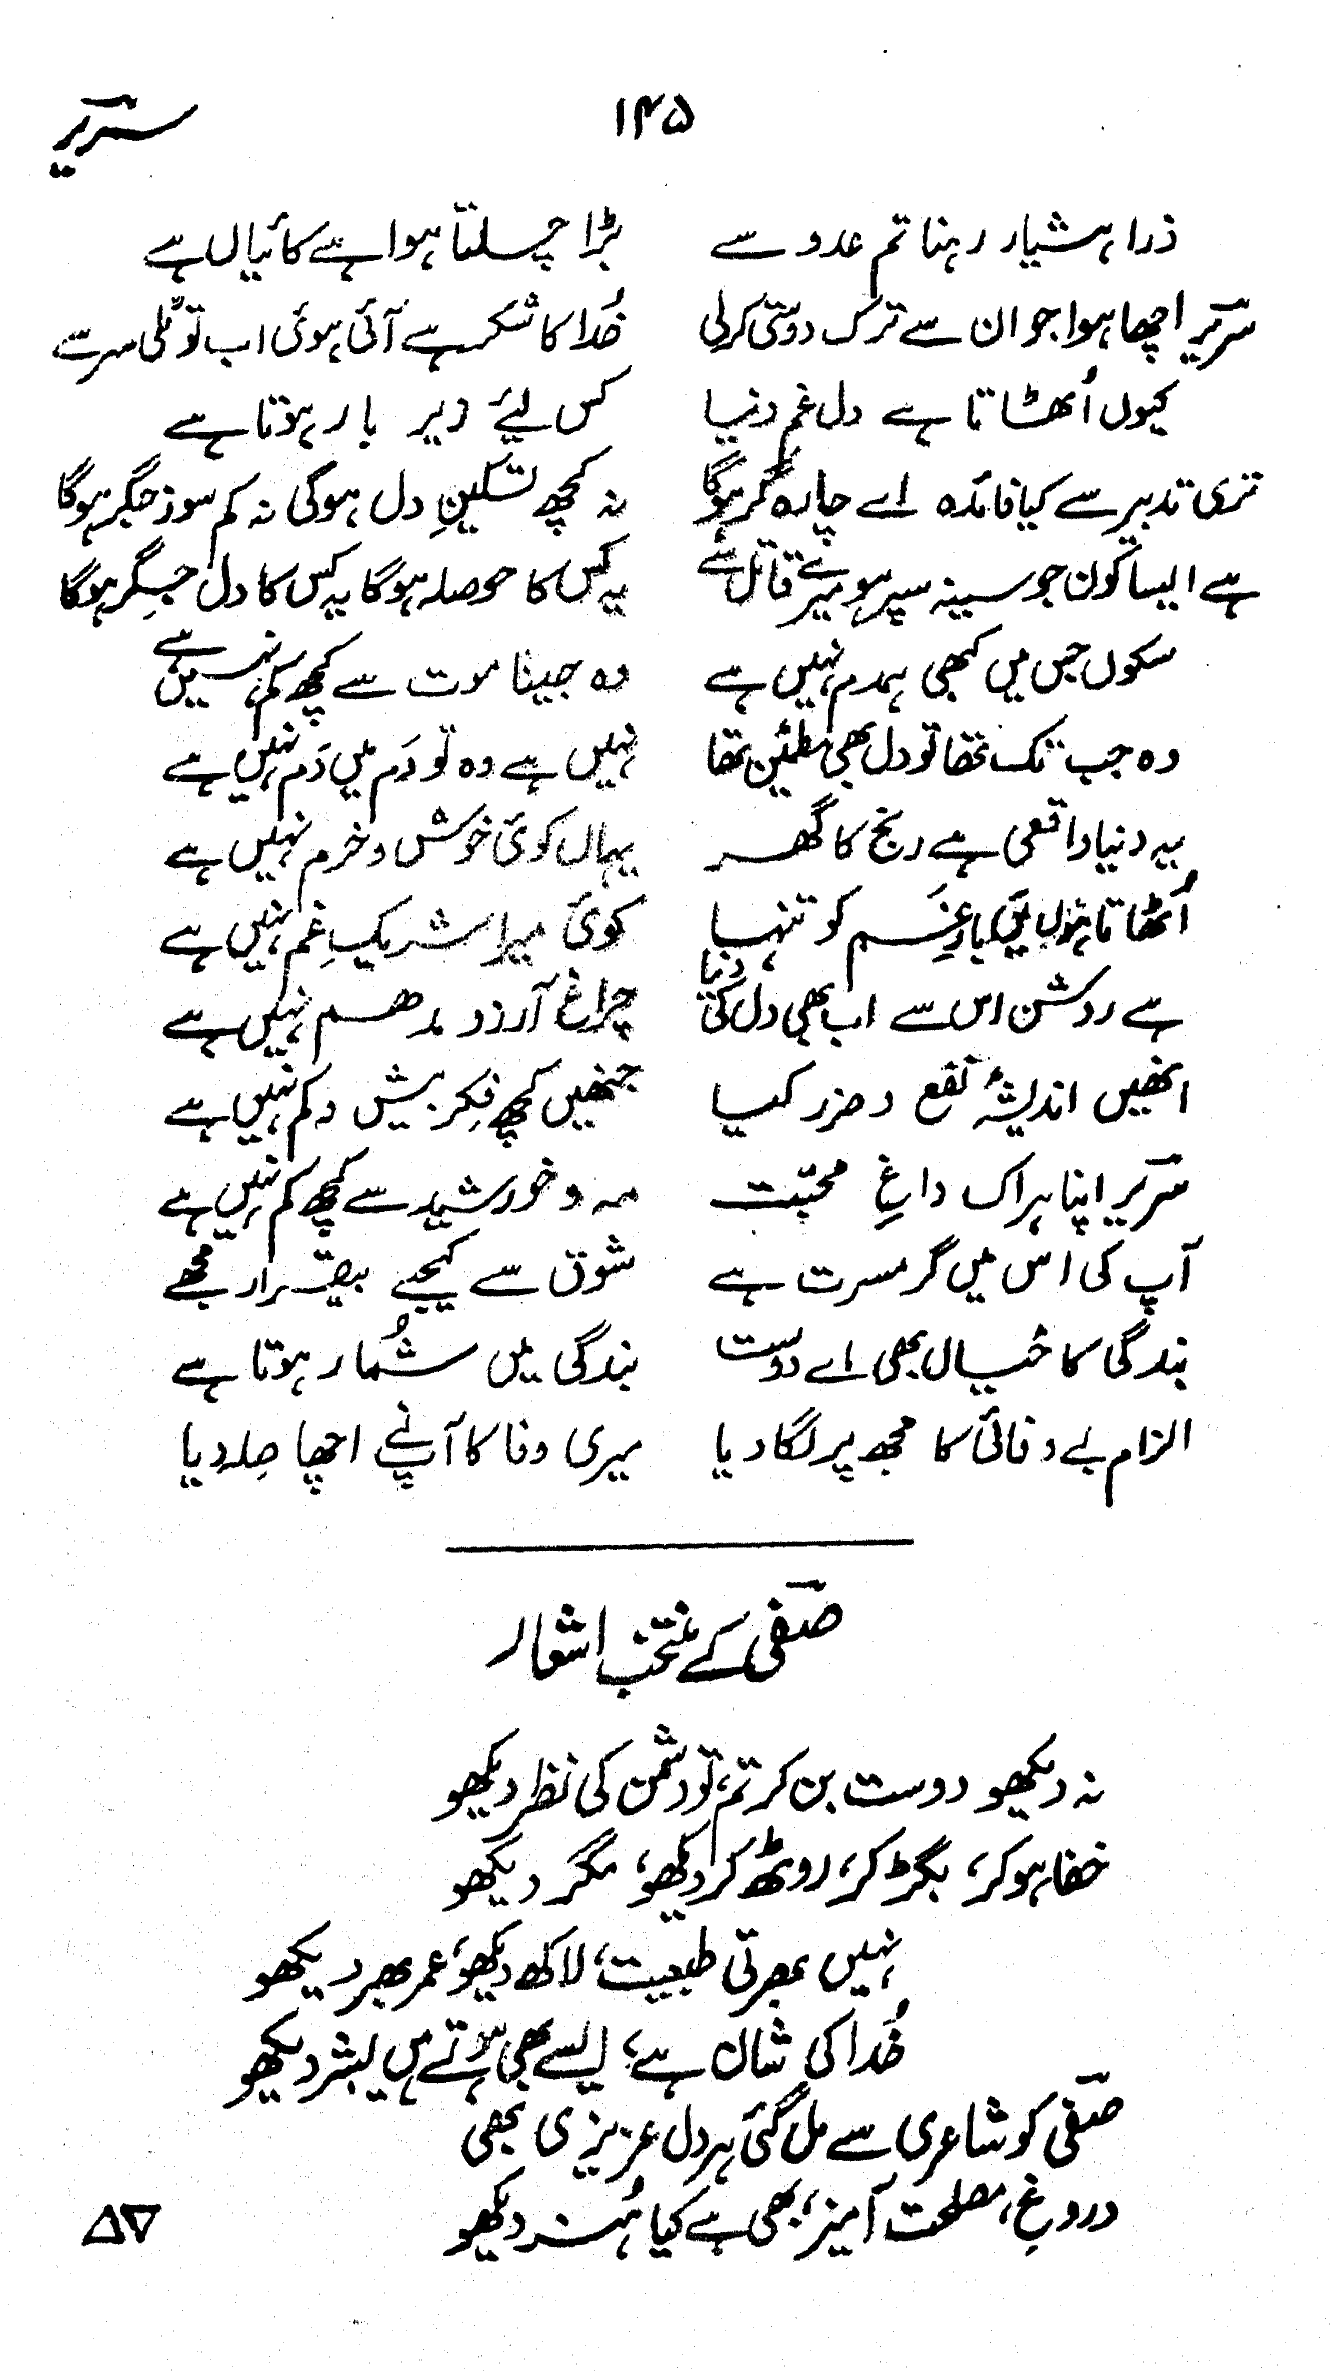 ۱۴۵
سریر
ذرا ہشیار رہنا تم عدو سے بڑا چلتا ہوا ہے کائیاں ہے
سریر اچھا ہوا جو ان سے ترک دوستی کرلی خُدا کا شکر ہے آئی ہوئی اب تو ٹلی سر سے
کیوں اُٹھاتا ہے دل غم دنیا کس لیئے زیر بار ہوتا ہے
تری تدبیر سے کیا فائدہ اے چارہ گر ہوگا نہ کچھ تسکینِ دل ہوگی نہ کم سوز جگر ہوگا
ہے ایسا کون جو سینہ سپر ہو میرے قاتل سے یہ کس کا حوصلہ ہوگا یہ کس کا دل جگر ہوگا
سکوں جس میں کبھی ہمدم نہیں ہے وہ جینا موت سے کچھ کم نہیں ہے
وہ جب تک تھا تو دل بھی مطمئن تھا نہیں ہے وہ تو دَم میں دَم نہیں ہے
یہ دنیا واقعی ہے رنج کا گھر یہاں کوئی خوش و خرم نہیں ہے
اُٹھاتا ہوں میں بارِ غم کو تنہا کوئی میرا شریکِ غم نہیں ہے
ہے روشن اس سے اب بھی دل کی دنیا چراغ آرزو مدھم نہیں ہے
انھیں اندیشۂ نفع و ضرر کیا جنھیں کچھ فکر بیش و کم نہیں ہے
سریر اپنا ہر اک داغِ محبّت مہ و خورشید سے کچھ کم نہیں ہے
آپ کی اس میں گر مسرت ہے شوق سے کیجیے بیقرار مجھے
بندگی کا خیال بھی اے دوست بندگی میں شُمار ہوتا ہے
الزام بے وفائی کا مجھ پر لگا دیا میری وفا کا آپ نے اچھا صلہ دیا
صفی کے منتخب اشعار
نہ دیکھو دوست بن کر تم، تو دشمن کی نظر دیکھو
خفا ہوکر، بگڑ کر، روٹھ کر دیکھو، مگر دیکھو
نہیں بھرتی طبیعت، لاکھ دیکھو، عمر بھر دیکھو
خُدا کی شان ہے، ایسے بھی ہوتے ہیں بشر دیکھو
صفی کو شاعری سے مل گئی ہر دل عزیزی بھی
دروغِ، مصلحت آمیز، بھی ہے کیا ہُنر دیکھو